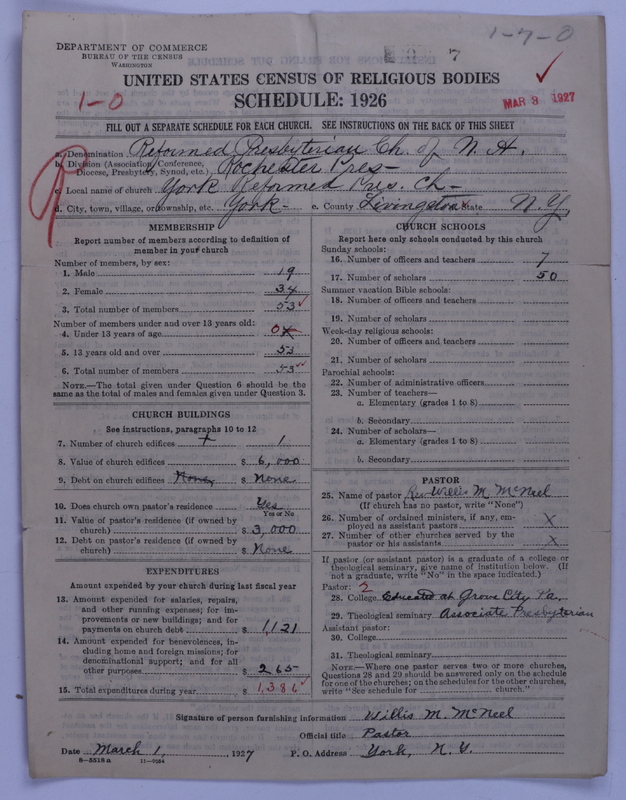 1-7-0
7
DEPARTMENT OF COMMERCE
BUREAU OF THE CENSUS
WASHINGTON
UNITED STATES CENSUS OF RELIGIOUS BODIES
1-0
SCHEDULE: 1926
MAR 3 1927
FILL OUT A SEPARATE SCHEDULE FOR EACH CHURCH. SEE INSTRUCTIONS ON THE BACK OF THIS SHEET
a. Denomination Reformed Presbyterian Ch. of N. A.
b. Division (Association, Conference, Diocese, Presbytery, Synod, etc.) Rochester Pres-
c. Local name of church York Reformed Pres. Ch-
d. City, town, village, or township, etc. York- e. County Livingston State N.Y.
MEMBERSHIP
Report number of members according to definition of
member in your church
Number of members, by sex:
1. Male 19
2. Female 34
3. Total number of members 53
Number of members under and over 13 years old:
4. Under 13 years of age 0 x
5. 13 years old and over 53
6. Total number of members 53
NOTE.—The total given under Question 6 should be the
same as the total of males and females given under Question 3.
CHURCH BUILDINGS
See instructions, paragraphs 10 to 12
7. Number of church edifices 1
8. Value of church edifices $ 6,000
9. Debt on church edifices None $ None
10. Does church own pastor's residence Yes
Yes or No
11. Value of pastor's residence (if owned by
church) $ 3,000
12. Debt on pastor's residence (if owned by
church) $ None
EXPENDITURES
Amount expended by your church during last fiscal year
13. Amount expended for salaries, repairs,
and other running expenses; for im-
provements or new buildings; and for
payments on church debt $ 1,121
14. Amount expended for benevolences, in-
cluding home and foreign missions; for
denominational support; and for all
other purposes $ 265
15. Total expenditures during year $ 1,386
CHURCH SCHOOLS
Report here only schools conducted by this church
Sunday schools:
16. Number of officers and teachers 7
17. Number of scholars 50
Summer vacation Bible schools:
18. Number of officers and teachers
19. Number of scholars
Week-day religious schools:
20. Number of officers and teachers
21. Number of scholars
Parochial schools:
22. Number of administrative officers
23. Number of teachers—
a. Elementary (grades 1 to 8)
b. Secondary
24. Number of scholars—
a. Elementary (grades 1 to 8)
b. Secondary
PASTOR
25. Name of pastor Rev Willis M. McNeel
(If church has no pastor, write "None")
26. Number of ordained ministers, if any, em-
ployed as assistant pastors x
27. Number of other churches served by the
pastor or his assistants x
If pastor (or assistant pastor) is a graduate of a college or
theological seminary, give name of institution below. (If
not a graduate, write "No" in the space indicated.)
Pastor: 2
28. College Educated at Grove City Pa.
29. Theological seminary Associate Presbyterian
Assistant pastor:
30. College
31. Theological seminary
NOTE.—Where one pastor serves two or more churches,
Questions 28 and 29 should be answered only on the schedule
for one of the churches; on the schedules for the other churches,
write "See schedule for church."
Signature of person furnishing information Willis M. McNeel
Official title Pastor
Date March 1, 1927 P. O. Address York, N. Y.
8-5518 a 11-9264